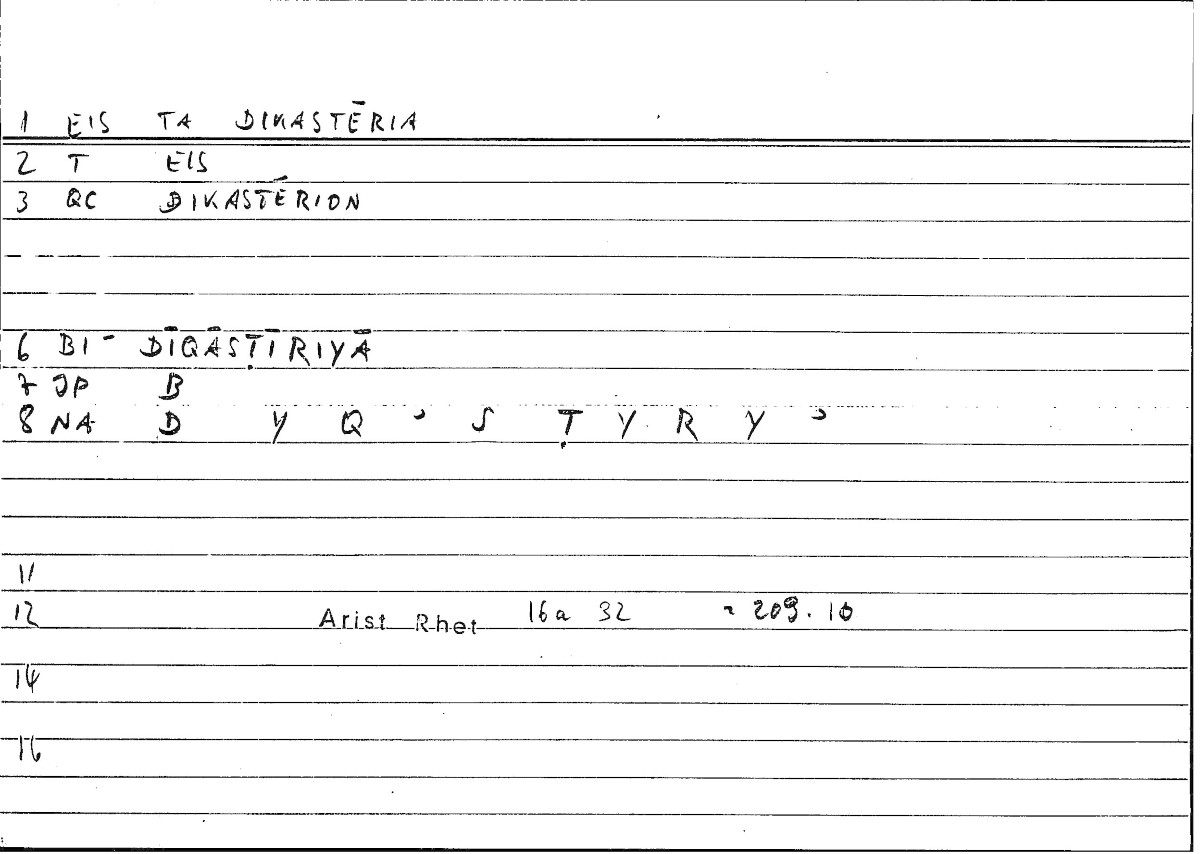 1 EIS TA DIKASTĒRIA
2 T EIS
3 QC DIKASTĒRION
6 BI- DĪQĀSṬĪRIYĀ
7 JP B
8 NA D Y Q ʾ S Ṭ Y R Y ʾ
11
12 Arist Rhet 16a 32 = 209.10
14
16